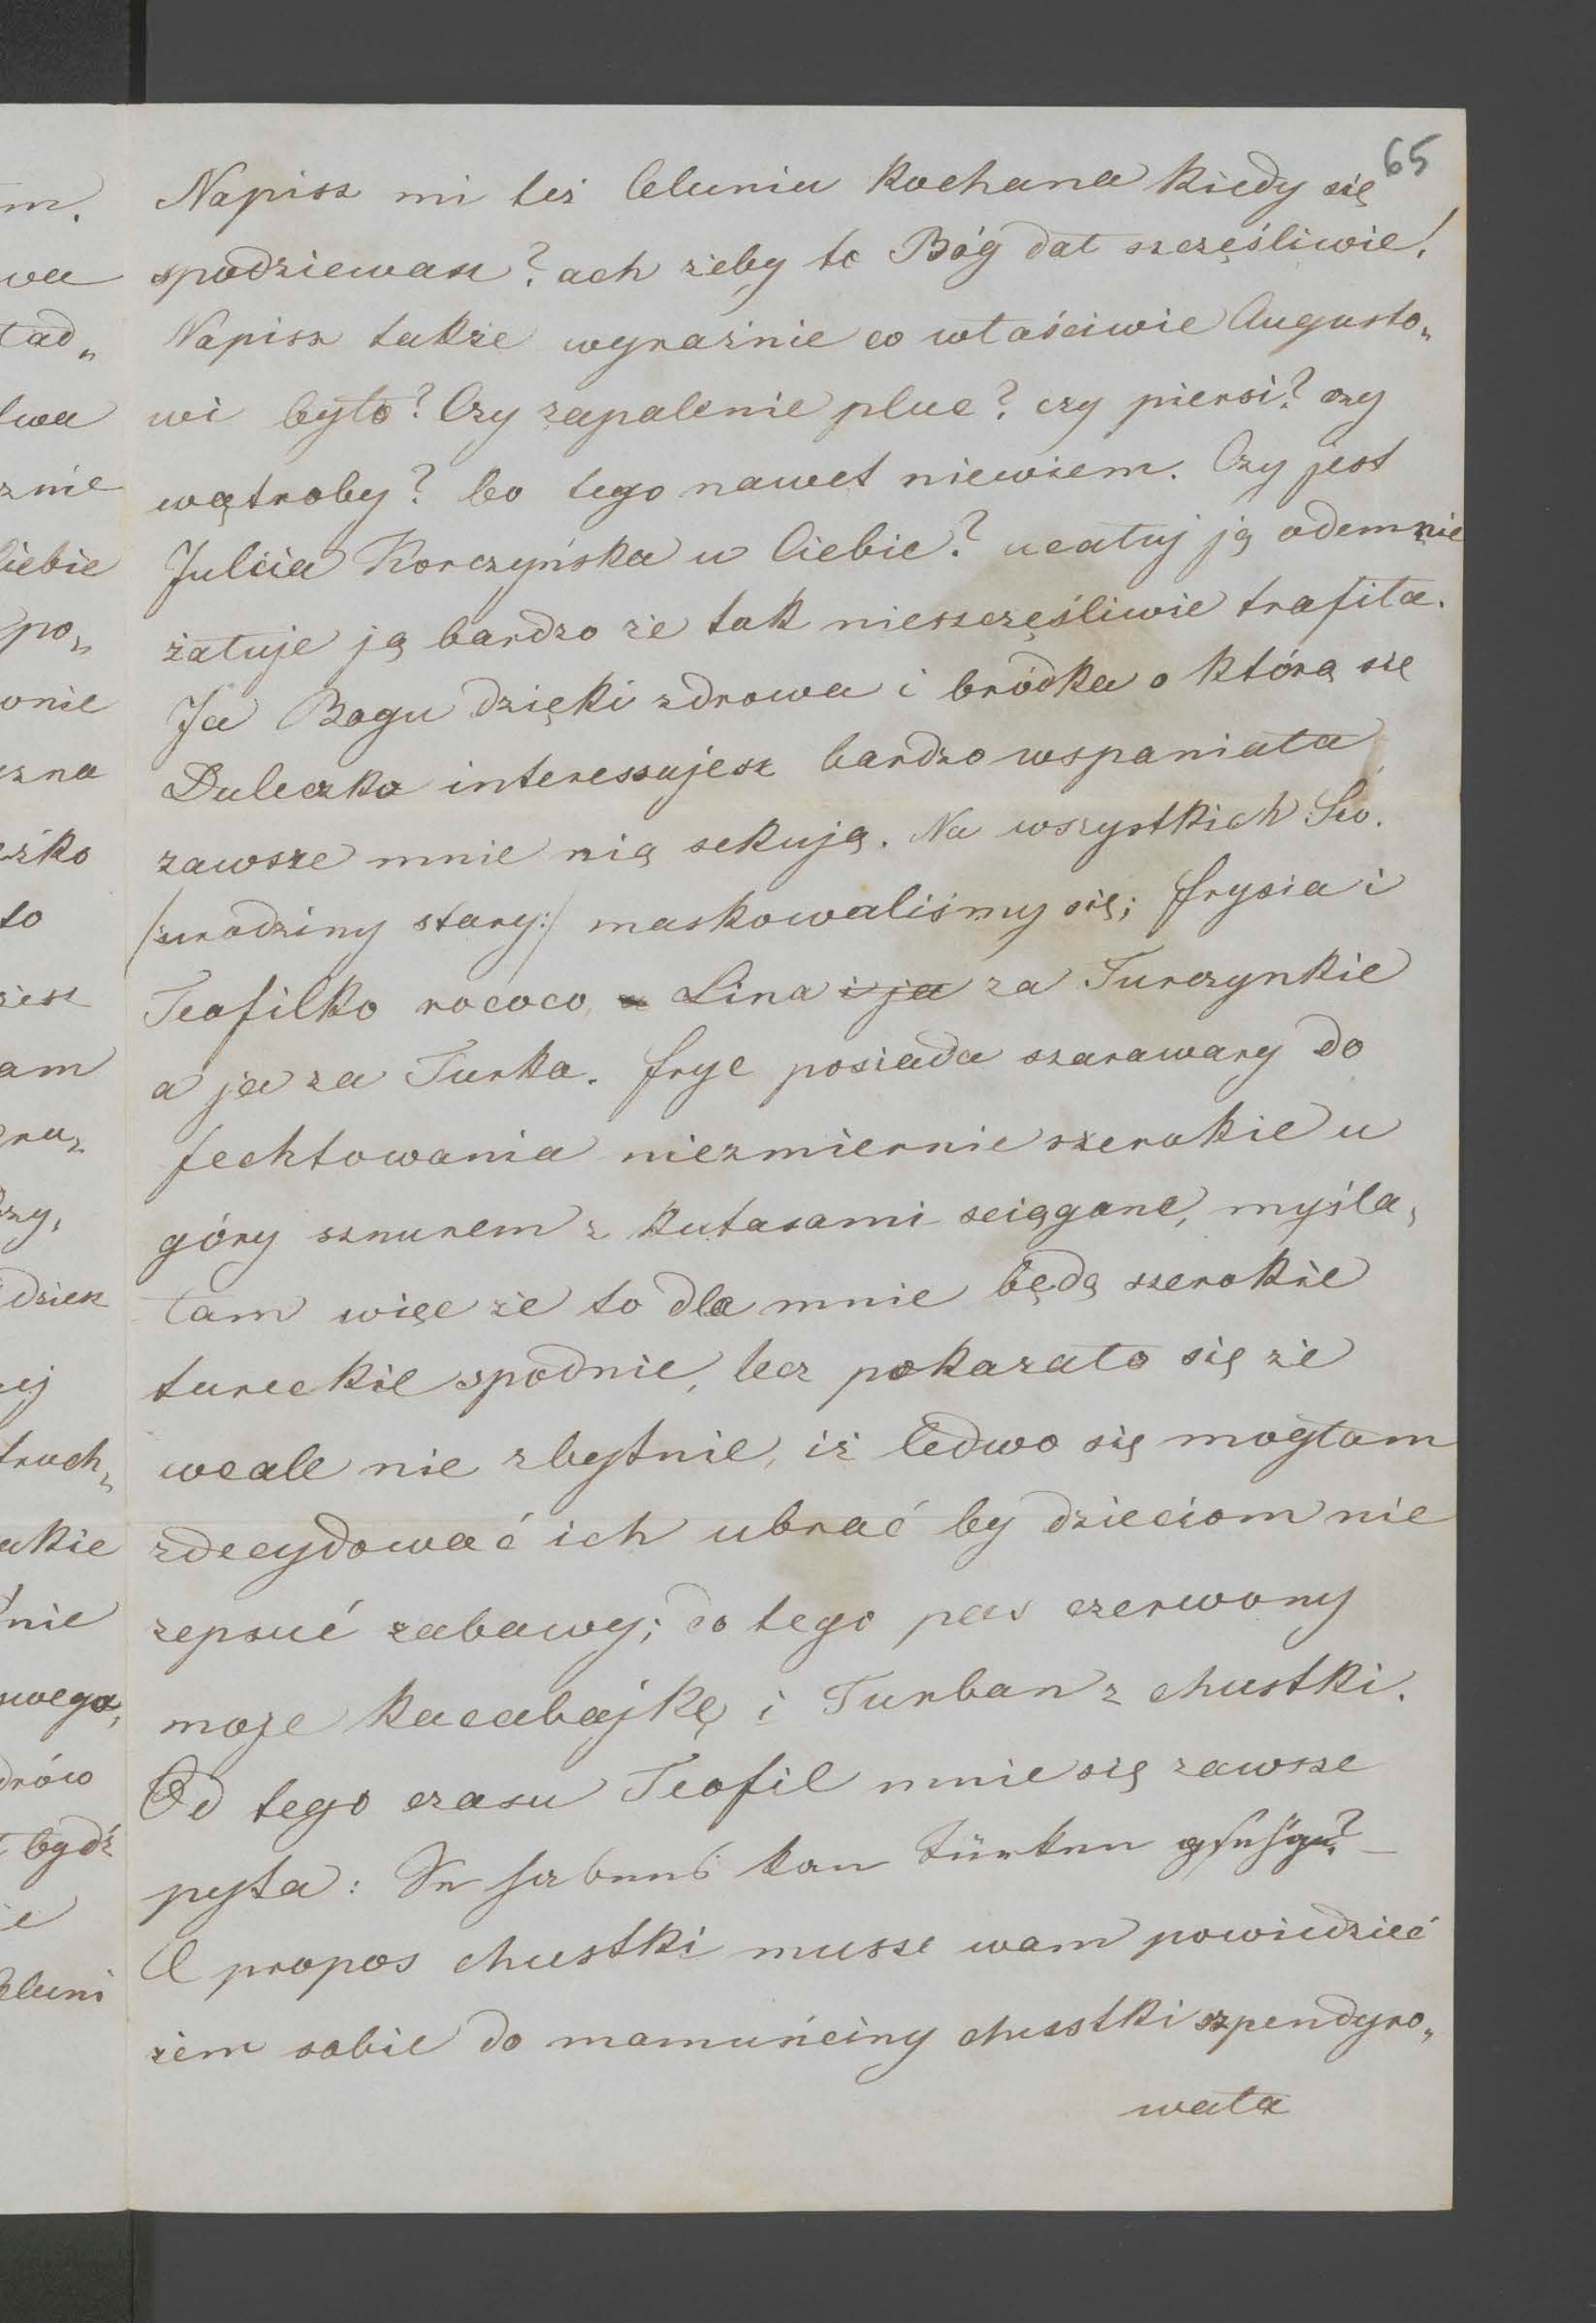 65
Napisz mi też Celuniu kochana kiedy się
spodziewasz? ach żeby to Bóg dał szczęśliwie!
Napisz także wyraźnie co właściwie Augusto„
wi było? Czy zapalenie płuc? czy piersi? czy
wątroby? bo tego nawet niewiem. Czy jest
Julcia Korczyńska u Ciebie? ucałuj ją odemnie
żałuje ją bardzo że tak nieszczęśliwie trafiła.
Ja Bogu dzięki zdrowa i bródka o którą się
Duleczko interessujesz bardzo wspaniała
zawsze mnie nią sekują. Na wszystkich Św.
/:urodziny stary:/ maskowaliśmy się; Frysia i
Teofilko rococo, a Lina i ja za Turczynkie
a ja za Turka. Fryc posiada szarawary do
fechtowania niezmiernie szerokie u
góry sznurem z kutasami sciągane, myśla„
łam więc że to dla mnie będą szerokie
tureckie spodnie, lecz pokazało się że
wcale nie zbytnie, iż ledwo się mogłam
zdecydować ich ubrać by dzieciom nie
zepsuć zabawy; do tego pas czerwony
moje kacabajkę i Turban z chustki.
Od tego czasu Teofil mnie się zawsze
pyta: Sie haben kan Türken gsehgn? —
A propos chustki musse wam powiedzieć
żem sobie do mamuńciny chusstki szpendyro„
wała
m.
wa
ład„
znie
Ciebie
po„
onie
czna
to
am
dzień
ej
truch„
akie
nie
swego,
drów
bydź
Celuni